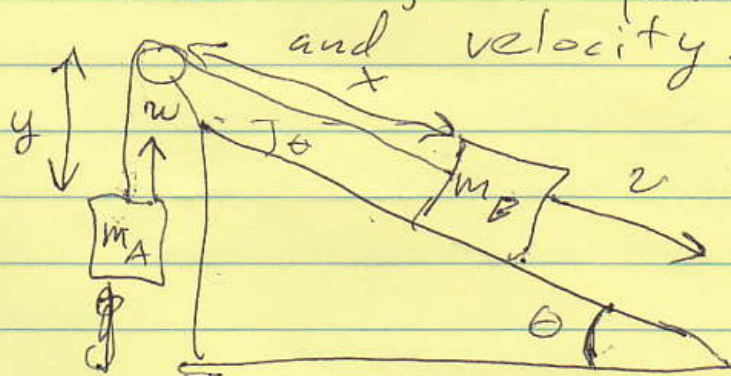 and velocity.
x
y
w
θ
m_A
m_B
v
θ